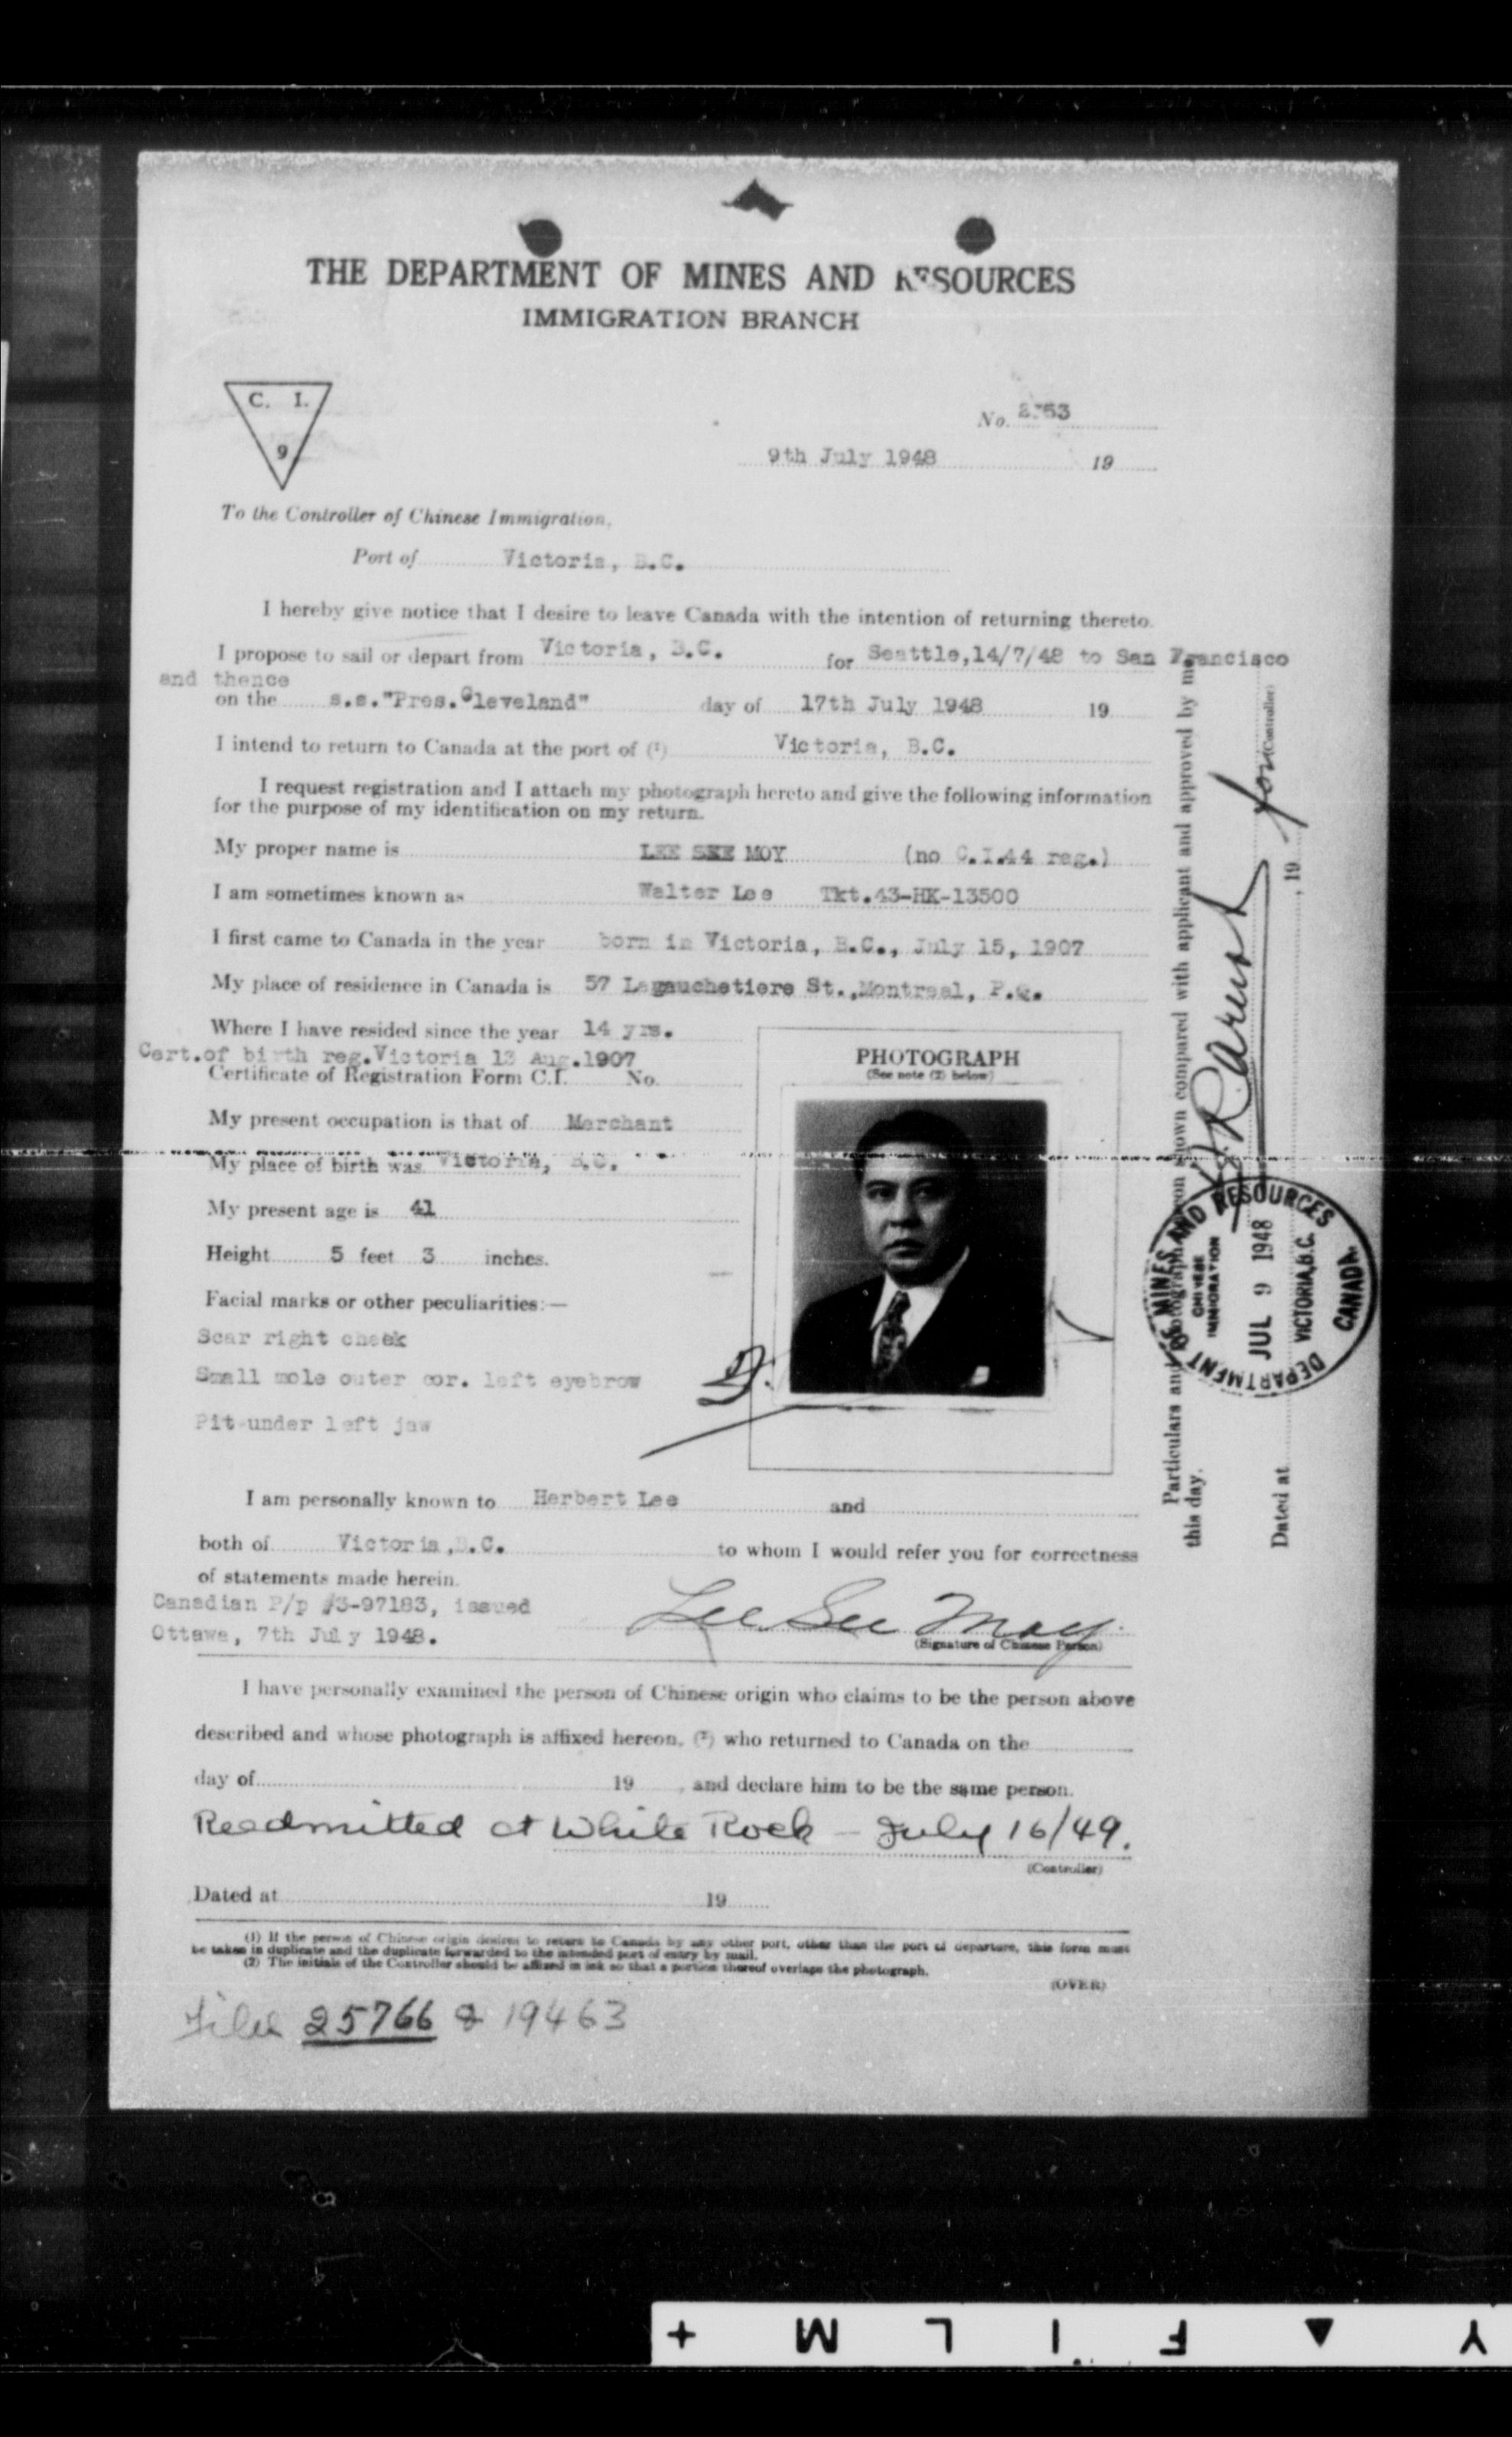 THE DEPARTMENT OF MINES AND RESOURCES
IMMIGRATION BRANCH
C. I.
9
No.
9th July 1948 19
To the Controller of Chinese Immigration,
Port of Victoria, B.C.
I hereby give notice that I desire to leave Canada with the intention of returning thereto.
I propose to sail or depart from Victoria, B.C. for Seattle,14/7/48 to San Francisco
and thence
on the s.s."Pres.Cleveland" day of 17th July 1948 19
I intend to return to Canada at the port of (¹) Victoria, B.C.
I request registration and I attach my photograph hereto and give the following information
for the purpose of my identification on my return.
My proper name is LEE SEE MOY (no C.I.44 reg.)
I am sometimes known as Walter Lee Tkt.43-HK-13500
I first came to Canada in the year born in Victoria, B.C., July 15, 1907
My place of residence in Canada is 57 Lagauchetiere St.,Montreal, P.Q.
Where I have resided since the year 14 yrs.
Cert.of birth reg.Victoria 13 Aug.1907
Certificate of Registration Form C.I. No.
My present occupation is that of Merchant
My place of birth was Victoria, B.C.
My present age is 41
Height 5 feet 3 inches.
Facial marks or other peculiarities:—
Scar right cheek
Small mole outer cor. left eyebrow
Pit under left jaw
PHOTOGRAPH
(See note (2) below)
I am personally known to Herbert Lee and
both of Victoria,B.C. to whom I would refer you for correctness
of statements made herein.
Canadian P/p #3-97183, issued
Ottawa, 7th July 1948.
Lee See Moy
(Signature of Chinese Person)
I have personally examined the person of Chinese origin who claims to be the person above
described and whose photograph is affixed hereon, (²) who returned to Canada on the
day of 19 , and declare him to be the same person.
Readmitted at White Rock - July 16/49.
(Controller)
Dated at 19
(1) If the person of Chinese origin desires to return to Canada by any other port, other than the port of departure, this form must
be taken in duplicate and the duplicate forwarded to the intended port of entry by mail.
(2) The initials of the Controller should be affixed in ink so that a portion thereof overlaps the photograph.
(OVER)
File 25766 & 19463
Particulars and photograph hereon shown compared with applicant and approved by me
this day.
for (Controller)
Dated at , 19
DEPARTMENT OF MINES AND RESOURCES
CHINESE
IMMIGRATION
JUL 9 1948
VICTORIA,B.C.
CANADA
Y ▲ F I L M +